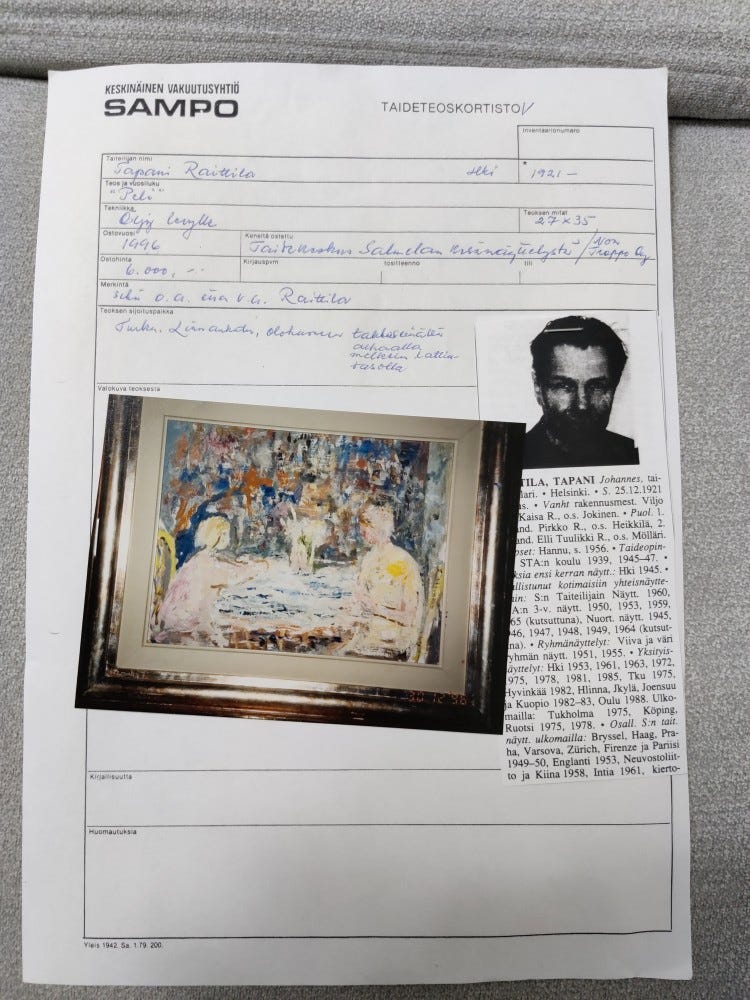 KESKINÄINEN VAKUUTUSYHTIÖ
SAMPO
TAIDETEOSKORTISTO
Inventaarionumero
Taiteilijan nimi
Tapani Raittila
Hki
*
1921 –
Teos ja vuosiluku
"Peli"
Tekniikka
Öljy levylle
Teoksen mitat
27 x 35
Ostovuosi
1996
Keneltä ostettu
Taidekeskus Salmelan kesänäyttelystä / Non Troppo Oy
Ostohinta
6.000, --
Kirjauspvm
tositteenno
tili
Merkintä
o.a. v.a. Raittila
Teoksen sijoituspaikka
Turku, Linnankatu, olohuoneen takkaseinällä
alhaalla
melkein lattia-
tasolla
Valokuva teoksesta
TILA, TAPANI Johannes, tai-
lari. • Helsinki. • S. 25.12.1921
as. • Vanht rakennusmest. Viljo
Kaisa R., o.s. Jokinen. • Puol. 1.
and. Pirkko R., o.s. Heikkilä, 2.
and. Elli Tuulikki R., o.s. Mölläri.
pset: Hannu, s. 1956. • Taideopin-
STA:n koulu 1939, 1945–47. •
ksia ensi kerran näytt.: Hki 1945. •
llistunut kotimaisiin yhteisnäytte-
in: S:n Taiteilijain Näytt. 1960,
A:n 3-v. näytt. 1950, 1953, 1959,
65 (kutsuttuna), Nuort. näytt. 1945,
46, 1947, 1948, 1949, 1964 (kutsut-
na). • Ryhmänäyttelyt: Viiva ja väri
yhmän näytt. 1951, 1955. • Yksityis-
äyttelyt: Hki 1953, 1961, 1963, 1972,
975, 1978, 1981, 1985, Tku 1975,
Hyvinkää 1982, Hlinna, Jkylä, Joensuu
ja Kuopio 1982–83, Oulu 1988. Ulko-
mailla: Tukholma 1975, Köping,
Ruotsi 1975, 1978. • Osall. S:n tait.
näytt. ulkomailla: Bryssel, Haag, Pra-
ha, Varsova, Zürich, Firenze ja Pariisi
1949–50, Englanti 1953, Neuvostoliit-
to ja Kiina 1958, Intia 1961, kierto-
Kirjallisuutta
Huomautuksia
Yleis 1942. Sa. 1.79. 200.